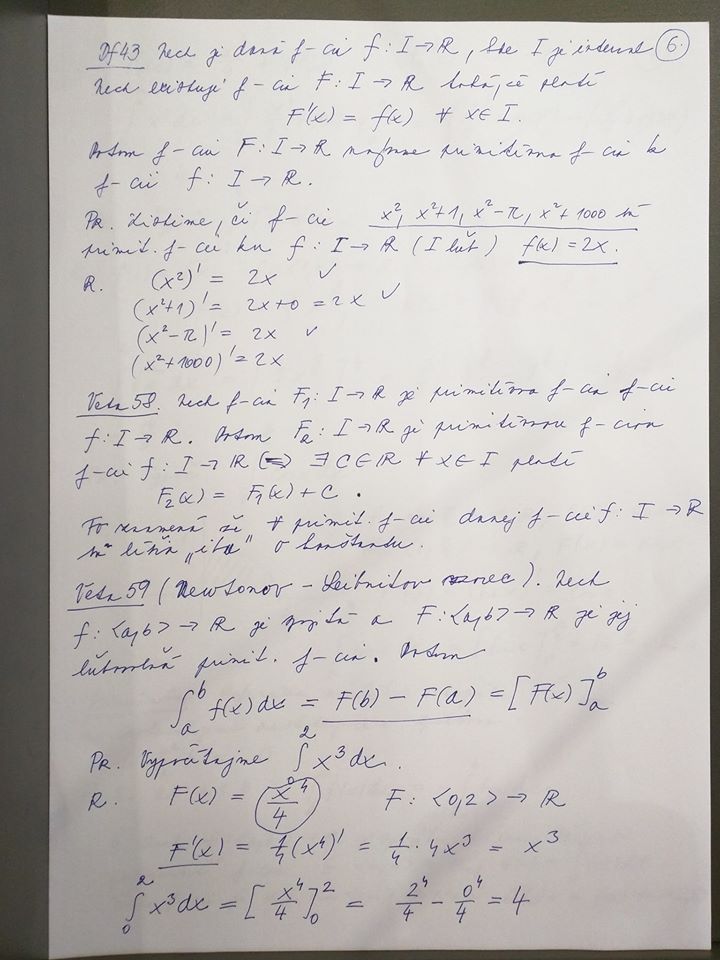 Df 43 Nech je daná f-cia f: I → R, kde I je interval 6.
Nech existuje f-cia F: I → R taká, že platí
F'(x) = f(x) ∀ x ∈ I.
Potom f-ciu F: I → R nazývame primitívna f-cia k
f-cii f: I → R.
Pr. Zistime, či f-cie x², x²+1, x²-π, x²+1000 sú
primit. f-cie ku f: I → R (I ľub.) f(x) = 2x.
R. (x²)' = 2x ✓
(x²+1)' = 2x+0 = 2x ✓
(x²-π)' = 2x ✓
(x²+1000)' = 2x
Veta 58. Nech f-cia F₁: I → R je primitívna f-cia f-cii
f: I → R. Potom F₂: I → R je primitívnou f-ciou
f-cii f: I → R ⇔ ∃ C ∈ R ∀ x ∈ I platí
F₂(x) = F₁(x) + C.
To znamená že ∀ primit. f-cie danej f-cie f: I → R
sa líšia „iba" o konštantu.
Veta 59 (Newtonov - Leibnitov vzorec). Nech
f: <a,b> → R je spojitá a F: <a,b> → R je jej
ľubovoľná primit. f-cia. Potom
∫ₐᵇ f(x) dx = F(b) - F(a) = [F(x)]ₐᵇ
Pr. Vypočítajme ∫₀² x³ dx.
R. F(x) = x⁴/4 F: <0,2> → R
F'(x) = 1/4 (x⁴)' = 1/4 · 4x³ = x³
∫₀² x³ dx = [x⁴/4]₀² = 2⁴/4 - 0⁴/4 = 4